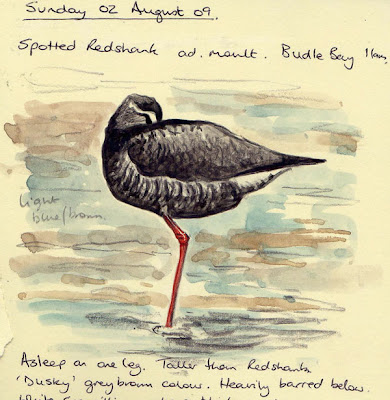 Sunday 02 August 09.
Spotted Redshank ad. moult. Budle Bay
Light
blue/brown.
Asleep on one leg. Taller than Redshank
'Dusky' grey brown colour. Heavily barred below.
White